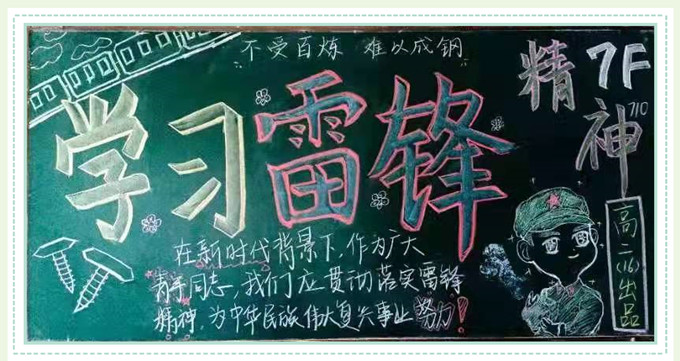 不受百炼 难以成钢
学习雷锋
精神
7F
710
在新时代背景下,作为广大
青年同志,我们应贯彻落实雷锋
精神,为中华民族伟大复兴事业努力!
高二(16)出品